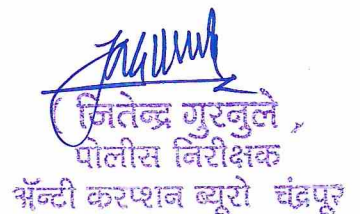 ( जितेन्द्र गुरनुले )
पोलीस निरीक्षक
ॲन्टी करप्शन ब्युरो चंद्रपूर